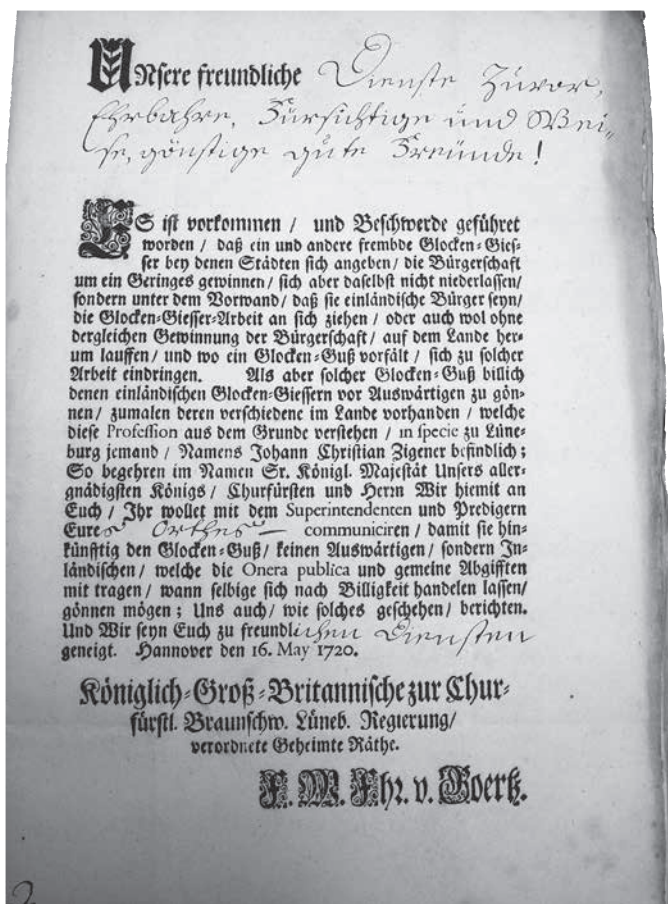 UNsere freundliche Dienste Zuvor,
Ehrbahre, Fürsichtige und Wei-
se, günstige gute Freunde!
ES ist vorkommen / und Beschwerde geführet
worden / daß ein und andere frembde Glocken-Gies-
ser bey denen Städten sich angeben / die Bürgerschaft
um ein Geringes gewinnen / sich aber daselbst nicht niederlassen /
sondern unter dem Vorwand / daß sie einländische Bürger seyn /
die Glocken-Giesser-Arbeit an sich ziehen / oder auch wol ohne
dergleichen Gewinnung der Bürgerschaft / auf dem Lande her-
um lauffen / und wo ein Glocken-Guß vorfält / sich zu solcher
Arbeit eindringen. Als aber solcher Glocken-Guß billich
denen einländischen Glocken-Giessern vor Auswärtigen zu gön-
nen / zumalen deren verschiedene im Lande vorhanden / welche
diese Profession aus dem Grunde verstehen / in specie zu Lüne-
burg jemand / Namens Johann Christian Zigener befindlich;
So begehren im Namen Sr. Königl. Majestät Unsers aller-
gnädigsten Königs / Churfürsten und Herrn Wir hiemit an
Euch / Ihr wollet mit dem Superintendenten und Predigern
Eures Orthes communiciren / damit sie hin-
künfftig den Glocken-Guß / keinen Auswärtigen / sondern In-
ländischen / welche die Onera publica und gemeine Abgifften
mit tragen / wann selbige sich nach Billigkeit handelen lassen /
gönnen mögen; Uns auch / wie solches geschehen / berichten.
Und Wir seyn Euch zu freundlichen Diensten
geneigt. Hannover den 16. May 1720.
Königlich-Groß-Britannische zur Chur-
fürstl. Braunschw. Lüneb. Regierung /
verordnete Geheimte Räthe.
F. W. Fhr. v. Goertz.
2